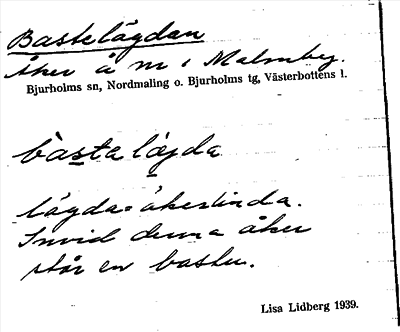 Bastelägdan
Åker å nr 1 Malmberg.
Bjurholms sn, Nordmaling o. Bjurholms tg, Västerbottens l.
bàsta lägda
lägda = åkerlinda.
Invid denna åker
står en bastu.
Lisa Lidberg 1939.